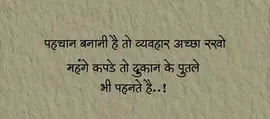 पहचान बनानी है तो व्यवहार अच्छा रखो
महंगे कपडे तो दुकान के पुतले
भी पहनते है..!